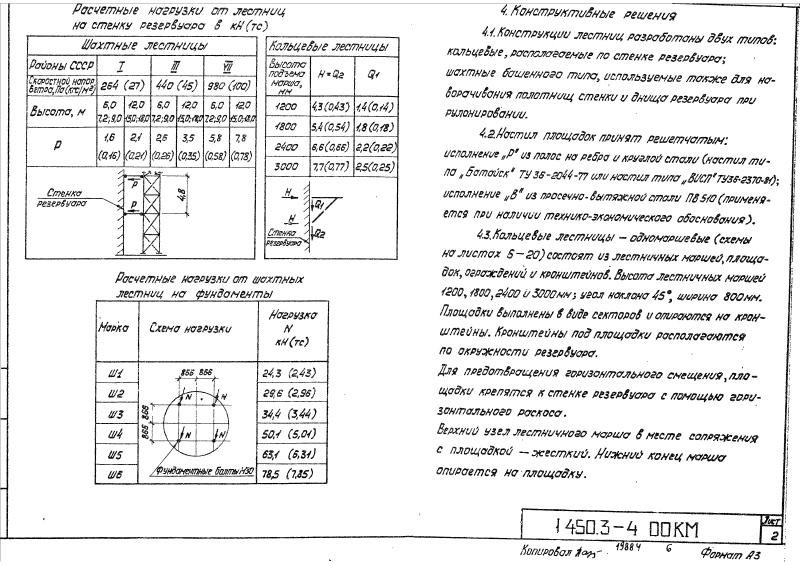 Расчетные нагрузки от лестниц
на стенку резервуара в кН (тс)
Шахтные лестницы
Районы СССР I III VII
Скоростной напор ветра, Па (кгс/м²) 264 (27) 440 (45) 980 (100)
Высота, м 6,0 12,0 6,0 12,0 6,0 12,0
7,2; 9,0 15,0; 18,0 7,2; 9,0 15,0; 18,0 7,2; 9,0 15,0; 18,0
Р 1,6 2,1 2,6 3,5 5,8 7,8
(0,16) (0,21) (0,26) (0,35) (0,58) (0,78)
Стенка
резервуара
Р
Р
4,8
Кольцевые лестницы
Высота
подъема
марша,
мм
Н=Q2 Q1
1200 4,3 (0,43) 1,4 (0,14)
1800 5,4 (0,54) 1,8 (0,18)
2400 6,6 (0,66) 2,2 (0,22)
3000 7,7 (0,77) 2,5 (0,25)
Н
Q1
Н
Q2
Стенка
резервуара
Расчетные нагрузки от шахтных
лестниц на фундаменты
Марка Схема нагрузки Нагрузка
N
кН (тс)
Ш1 24,3 (2,43)
Ш2 29,6 (2,96)
Ш3 34,4 (3,44)
Ш4 50,1 (5,01)
Ш5 63,1 (6,31)
Ш6 78,5 (7,85)
866 866
866 866
N N
N N
Фундаментные болты М30
4. Конструктивные решения
4.1. Конструкции лестниц разработаны двух типов:
кольцевые, располагаемые по стенке резервуара;
шахтные башенного типа, используемые также для на-
ворачивания полотнищ стенки и днища резервуара при
рулонировании.
4.2. Настил площадок принят решетчатым:
исполнение „Р" из полос на ребро и круглой стали (настил ти-
па „Батайск" ТУ 36-2044-77 или настил типа „ВИСП" ТУ36-2370-81);
исполнение „В" из просечно-вытяжной стали ПВ 510 (применя-
ется при наличии технико-экономического обоснования).
4.3. Кольцевые лестницы — одномаршевые (схемы
на листах 5-20) состоят из лестничных маршей, площа-
док, ограждений и кронштейнов. Высота лестничных маршей
1200, 1800, 2400 и 3000 мм; угол наклона 45°, ширина 800 мм.
Площадки выполнены в виде секторов и опираются на крон-
штейны. Кронштейны под площадки располагаются
по окружности резервуара.
Для предотвращения горизонтального смещения, пло-
щадки крепятся к стенке резервуара с помощью гори-
зонтального раскоса.
Верхний узел лестничного марша в месте сопряжения
с площадкой — жесткий. Нижний конец марша
опирается на площадку.
1 450.3-4 00КМ
Лист
2
Копировал 19884 6 Формат А3